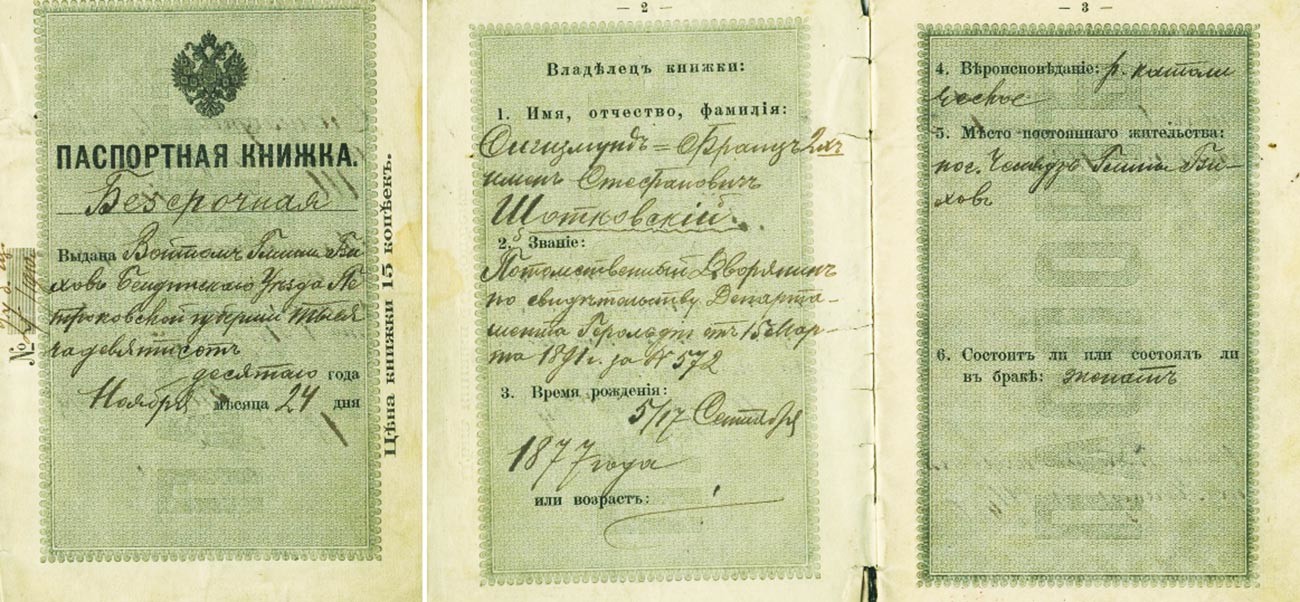 ПАСПОРТНАЯ КНИЖКА.
Безсрочная
Выдана Войтомъ Гмины
ховъ Бендинскаго Уѣзда Пе-
троковской губерніи Тысяча
девятисотъ
десятаго года
Ноября мѣсяца 24 дня
№
Цѣна книжки 15 копѣекъ.
— 2 —
Владѣлецъ книжки:
1. Имя, отчество, фамилія:
Сигизмундъ = Францъ 2хъ
именъ Стефановичъ
Шотковскій.
2. Званіе:
Потомственный Дворянинъ
по свидѣтельству Департа-
мента Герольдіи отъ 15 Мар-
та 1891 г. за № 572
3. Время рожденія:
5/17 Сентября
1877 года
или возрастъ:
— 3 —
4. Вѣроисповѣданіе: р. католи
ческое
5. Мѣсто постояннаго жительства:
пос. Гмины
ховъ
6. Состоитъ ли или состоялъ ли
въ бракѣ: женатъ